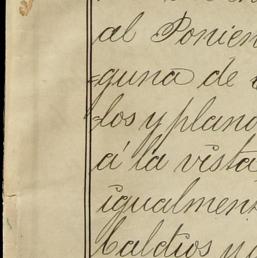 al Ponien
=guna de
=los y plano
á la vista
igualment
baldios y